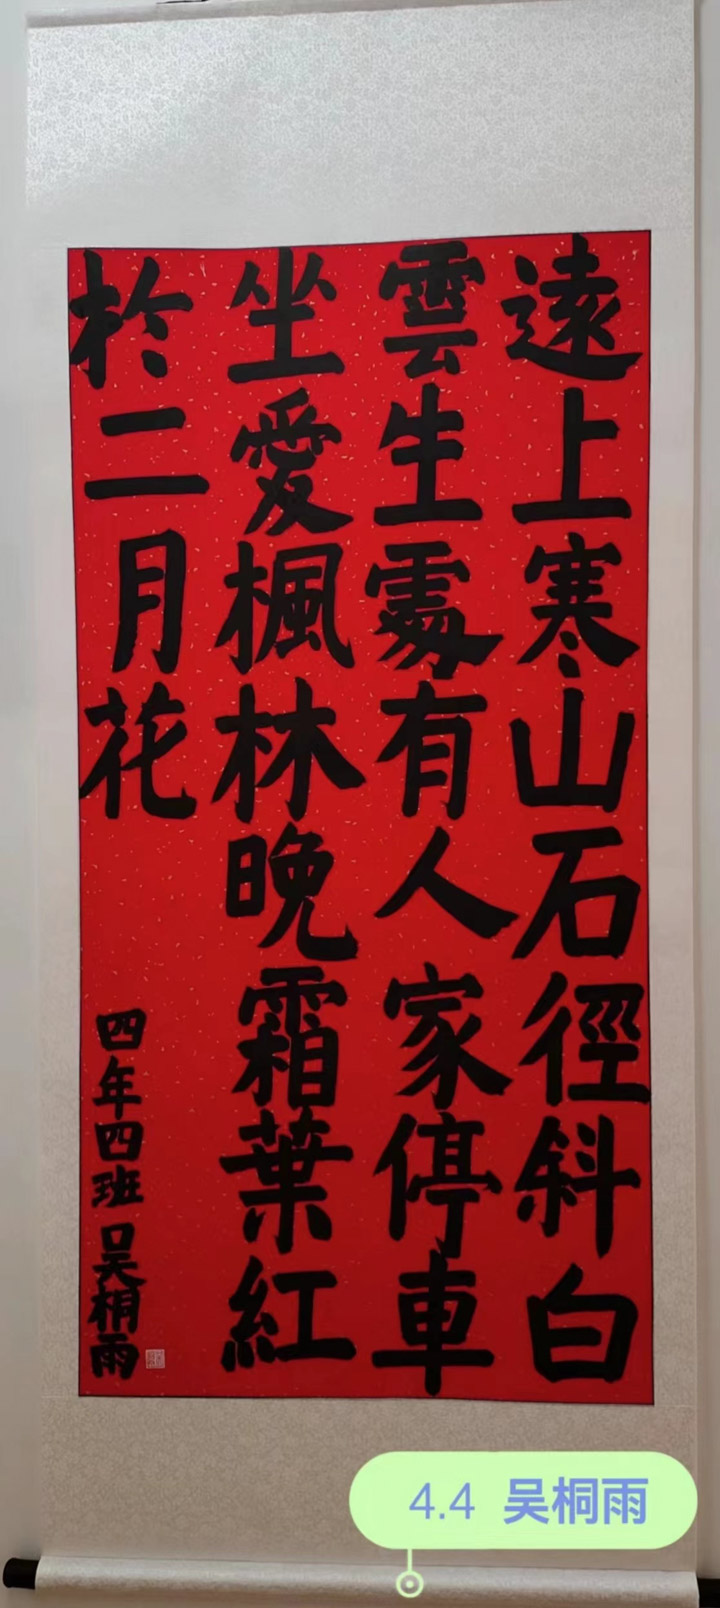 遠上寒山石徑斜白
雲生處有人家停車
坐愛楓林晚霜葉紅
於二月花
四年四班吴桐雨
4.4 吴桐雨